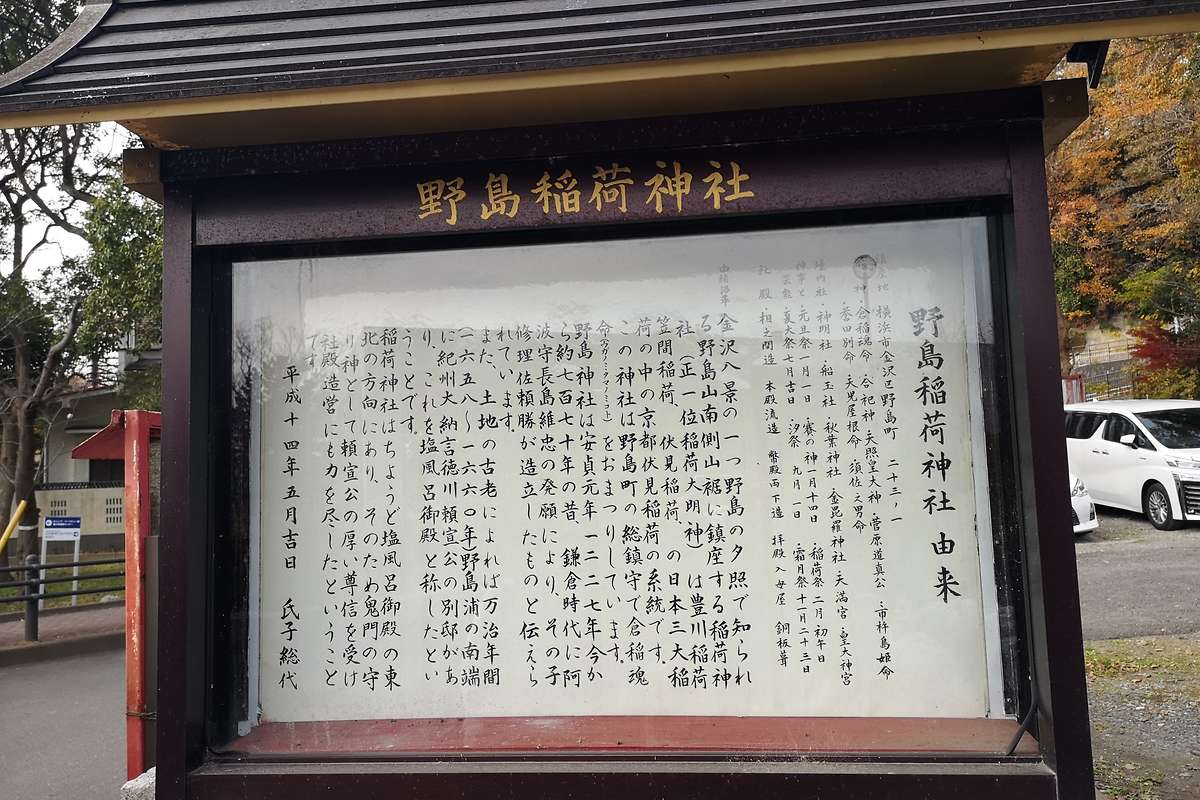 野島稲荷神社
野島稲荷神社 由来
鎮座地 横浜市金沢区野島町 二十三ノ一
祭神 ・倉稲魂命 ・合祀神・天照皇大神・菅原道真公 ・市杵島姫命
・誉田別命・天児屋根命・須佐之男命
境内社・神明社・船玉社・秋葉神社・金毘羅神社・天満宮・皇大神宮
神事と・元旦祭一月一日・賽の神一月十四日 ・稲荷祭二月初午日
芸能・夏大祭七月吉日・汐祭 九月一日 ・霜月祭十一月二十三日
社殿・相之間造 本殿流造 幣殿両下造 拝殿入母屋 銅板葺
由緒沿革 金沢八景の一つ野島の夕照で知られ
る野島山南側山裾に鎮座する稲荷神
社(正一位稲荷大明神)は豊川稲荷
笠間稲荷、伏見稲荷、の日本三大稲
荷の中の京都伏見稲荷の系統です。
この神社は野島町の総鎮守で倉稲魂
命(ウガノミタマノミコト)をおまつりしています。
野島神社は安貞元年一二二七年今か
ら約七百七十年の昔、鎌倉時代に阿
波守長島維忠の発願により、その子
修理佐頼勝が造立したものと伝えら
れています。
また、土地の古老によれば万治年間
(一六五八〜一六六〇年)野島浦の南端
に紀州大納言徳川頼宣公の別邸があ
り、これを塩風呂御殿と称したとい
うことです。
稲荷神社はちょうど塩風呂御殿の東
北の方向にあり、そのため鬼門の守
り神として頼宣公の厚い尊信を受け
社殿造営にも力を尽したということ
です。
平成十四年五月吉日 氏子総代